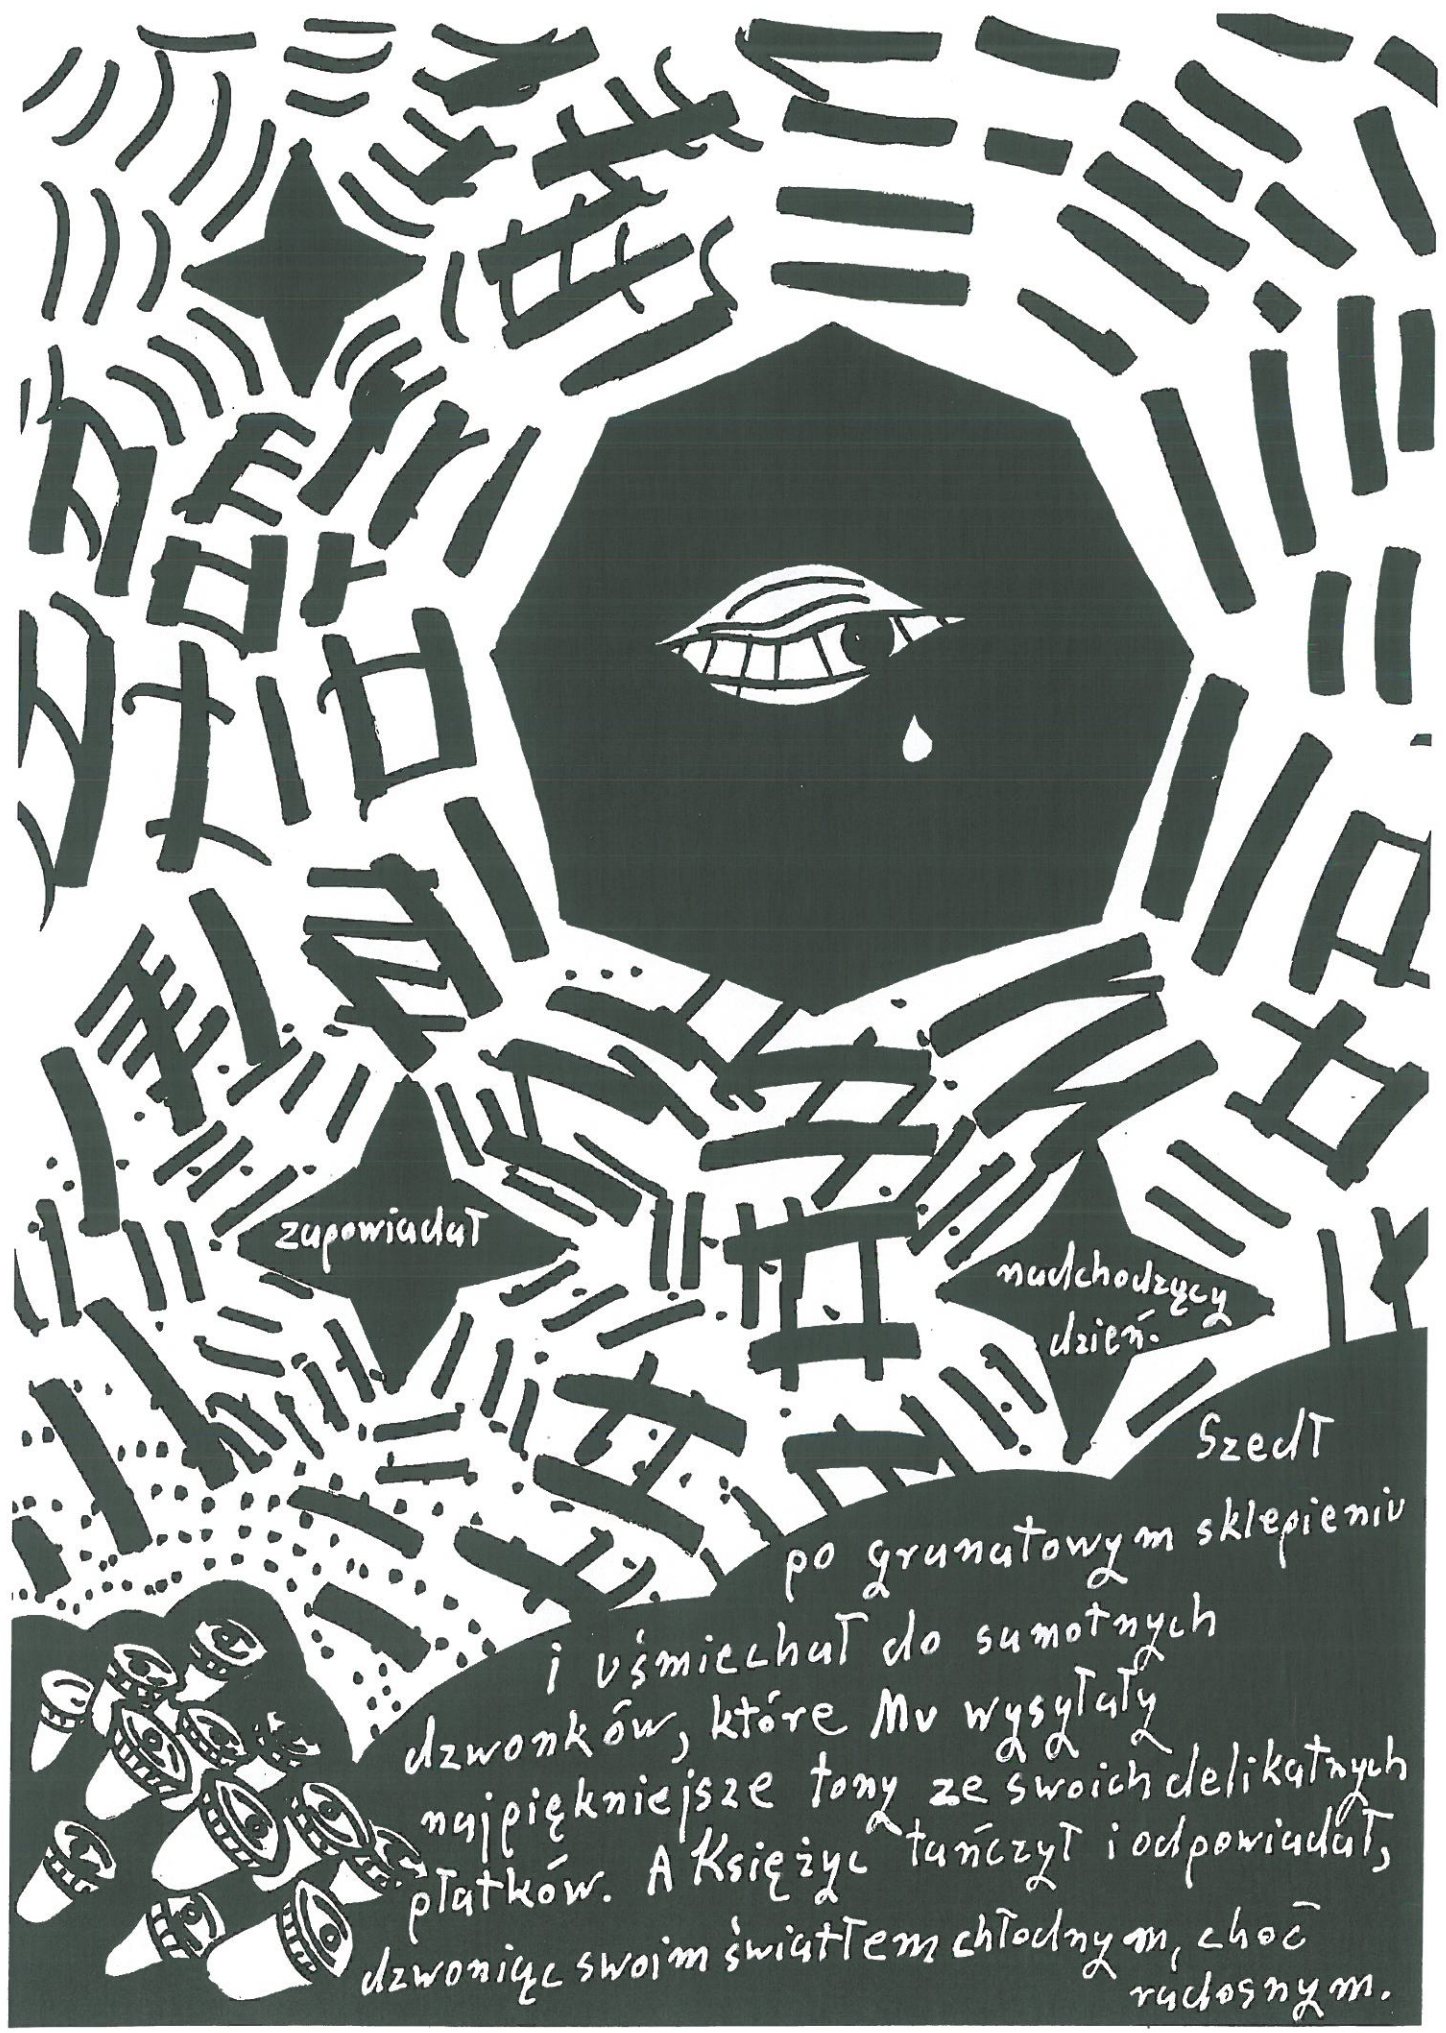 zapowiadał
nadchodzący
dzień.
Szedł
po granatowym sklepieniu
i uśmiechał do samotnych
dzwonków, które Mu wysyłały
najpiękniejsze tony ze swoich delikatnych
płatków. A Księżyc tańczył i odpowiadał,
dzwoniąc swoim światłem chłodnym, choć
radosnym.